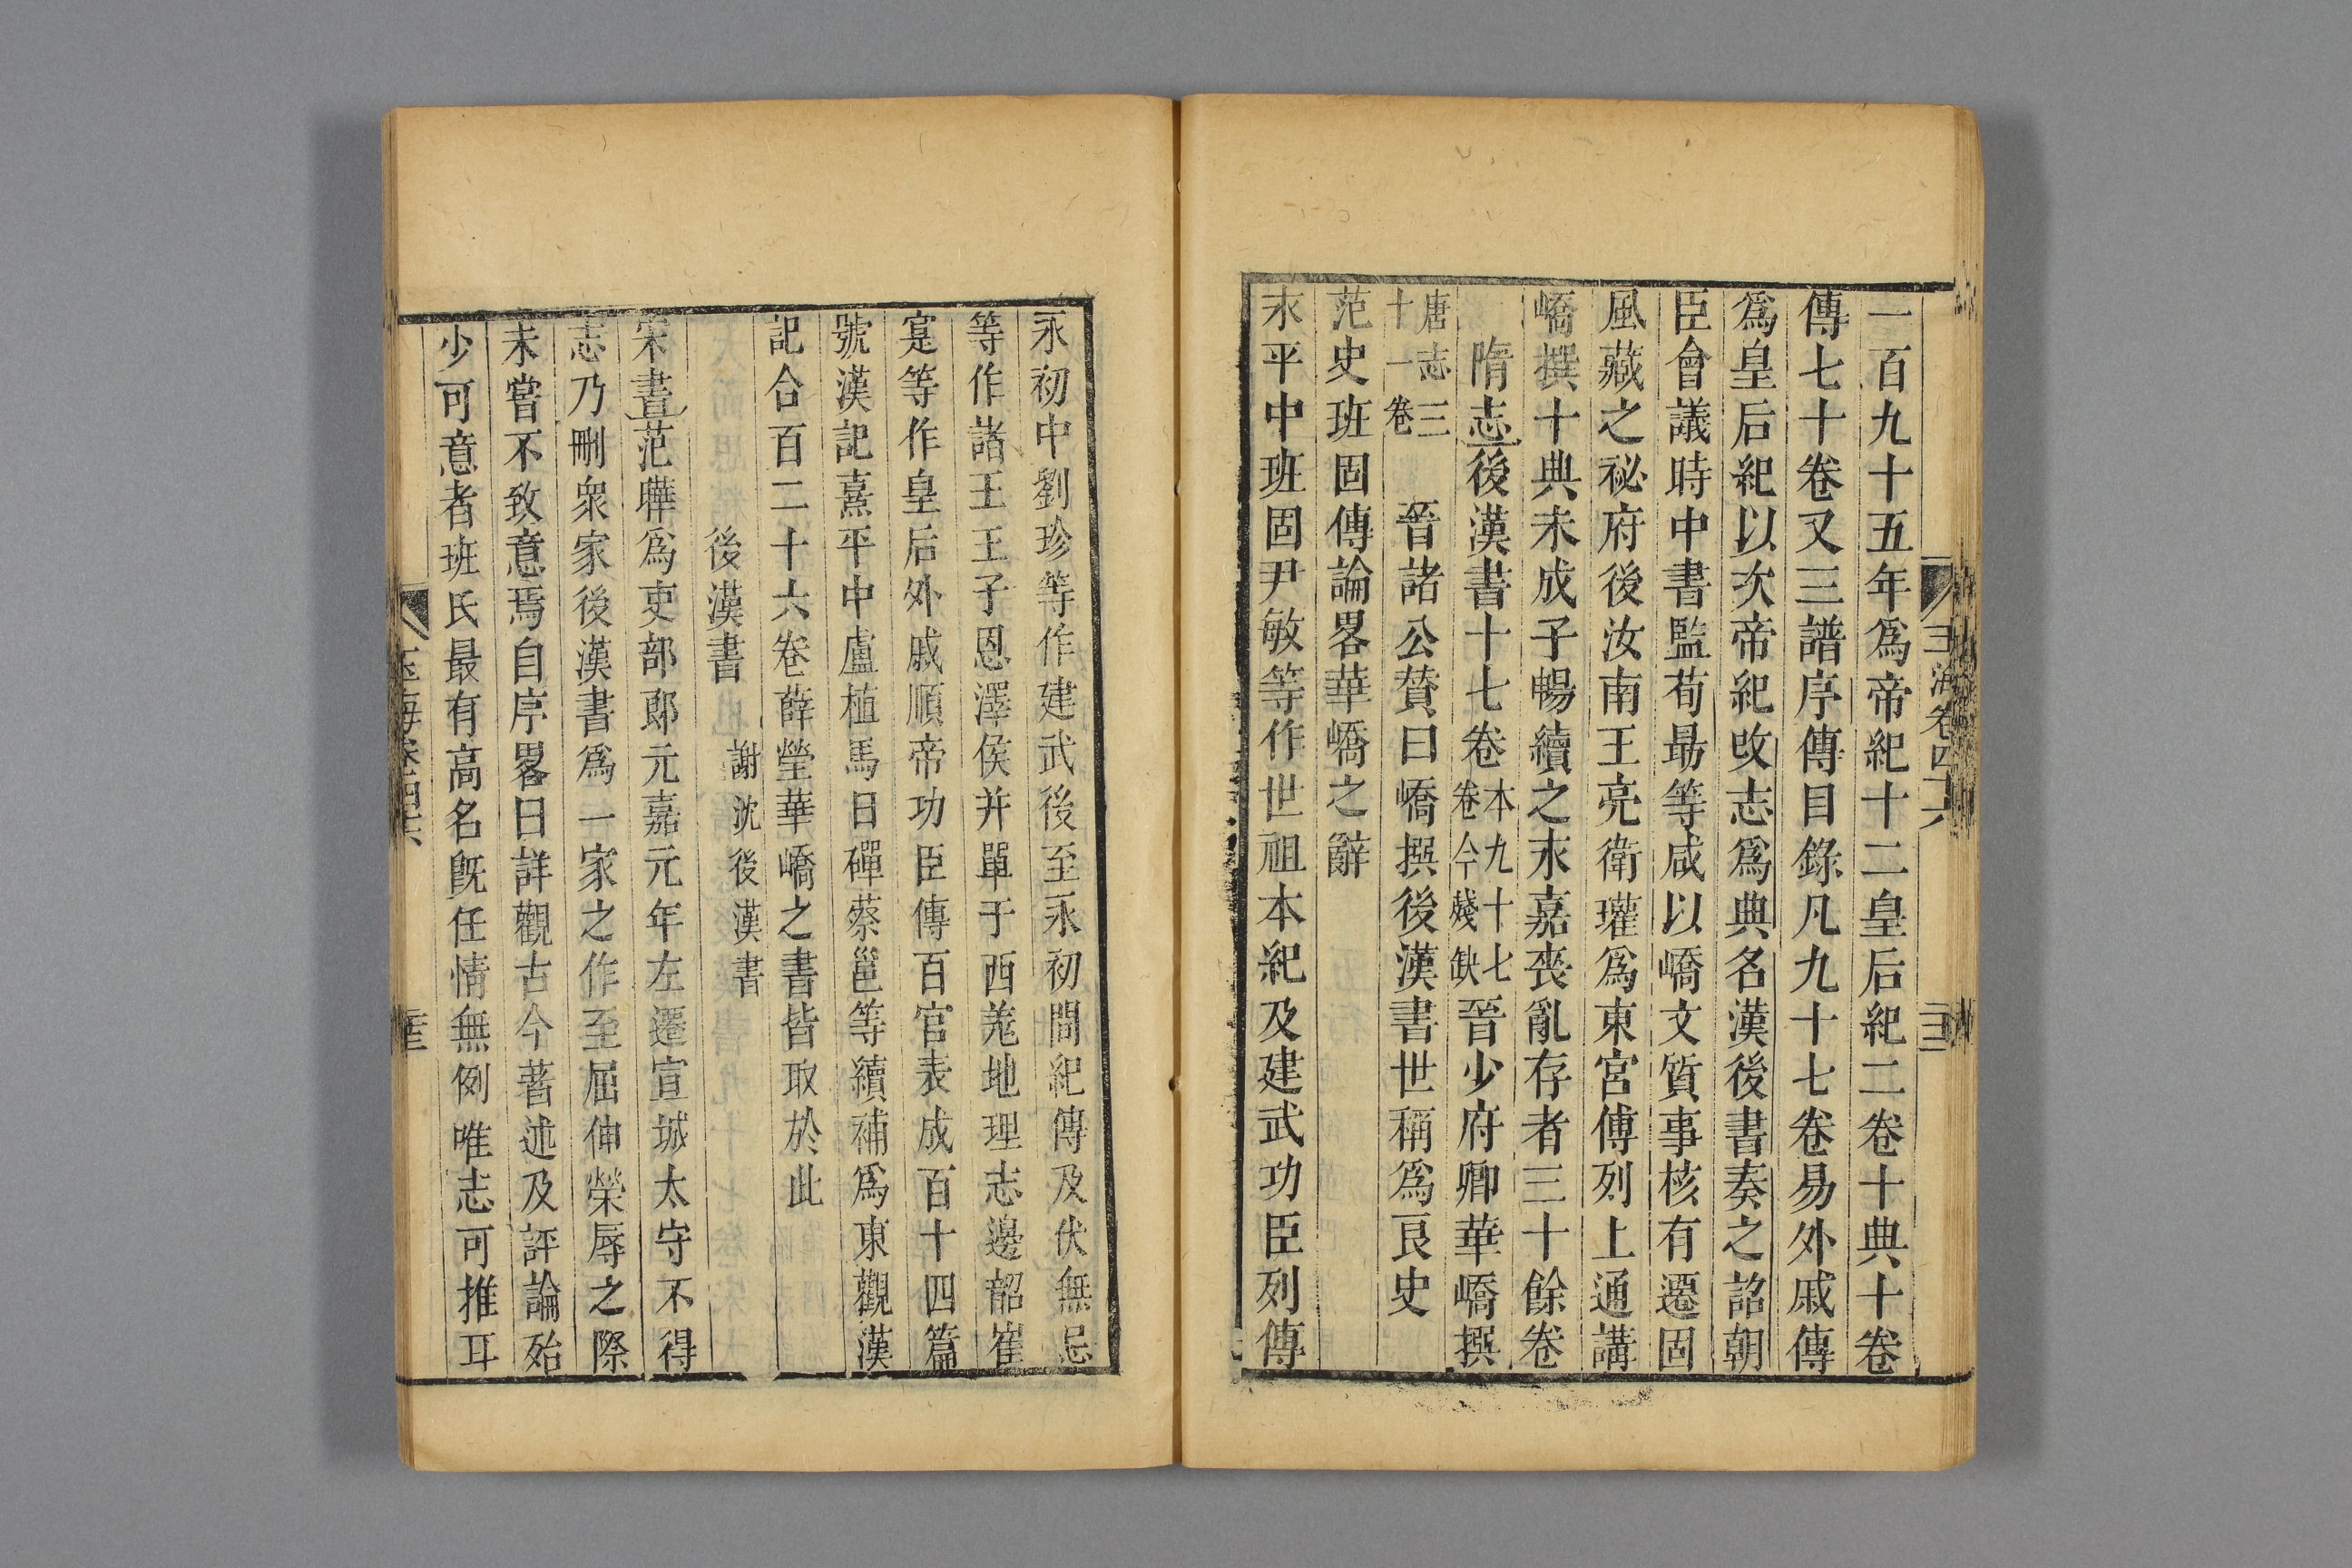 一百九十五年爲帝紀十二皇后紀二卷十典十卷
傳七十卷又三譜序傳目錄凡九十七卷易外戚傳
爲皇后紀以次帝紀改志爲典名漢後書奏之詔朝
臣會議時中書監荀勗等咸以嶠文質事核有遷固
風藏之祕府後汝南王亮衛瓘爲東宮傅列上通講
嶠撰十典未成子暢續之永嘉喪亂存者三十餘卷
隋志後漢書十七卷本九十七卷今殘缺晉少府卿華嶠撰
唐志三十一卷 晉諸公贊曰嶠撰後漢書世稱爲良史
范史班固傳論畧華嶠之辭
永平中班固尹敏等作世祖本紀及建武功臣列傳
永初中劉珍等作建武後至永初間紀傳及伏無忌
等作諸王王子恩澤侯并單于西羌地理志邊韶崔
寔等作皇后外戚順帝功臣傳百官表成百十四篇
號漢記熹平中盧植馬日磾蔡邕等續補爲東觀漢
記合百二十六卷薛瑩華嶠之書皆取於此
後漢書 謝沈後漢書
宋書范曄爲吏部郎元嘉元年左遷宣城太守不得
志乃刪衆家後漢書爲一家之作至屈伸榮辱之際
未嘗不致意焉自序畧曰詳觀古今著述及評論殆
少可意者班氏最有高名旣任情無例唯志可推耳